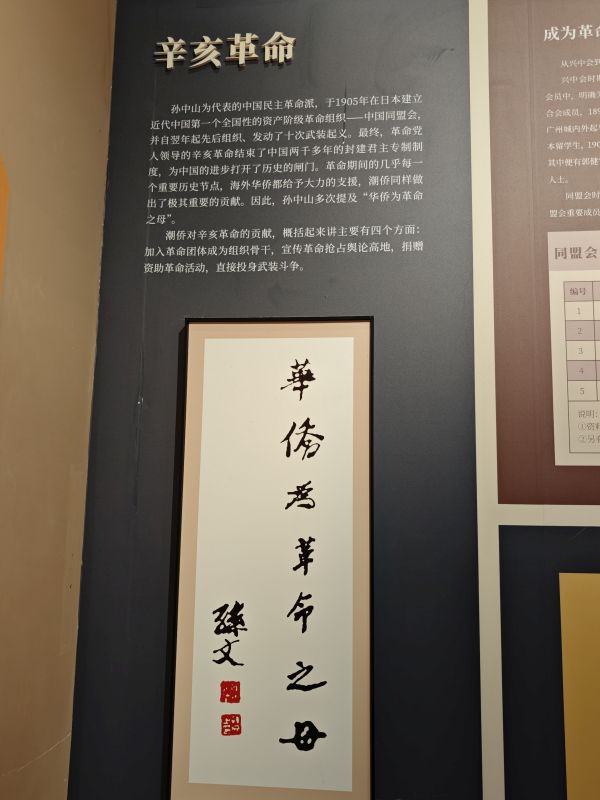 辛亥革命
孙中山为代表的中国民主革命派，于1905年在日本建立
近代中国第一个全国性的资产阶级革命组织——中国同盟会，
并自翌年起先后组织、发动了十次武装起义。最终，革命党
人领导的辛亥革命结束了中国两千多年的封建君主专制制
度，为中国的进步打开了历史的闸门。革命期间的几乎每一
个重要历史节点，海外华侨都给予大力的支援，潮侨同样做
出了极其重要的贡献。因此，孙中山多次提及“华侨为革命
之母”。
潮侨对辛亥革命的贡献，概括起来讲主要有四个方面：
加入革命团体成为组织骨干，宣传革命抢占舆论高地，捐赠
资助革命活动，直接投身武装斗争。
華僑為革命之母
孫文
成为革命
从兴中会到
兴中会时期
会员中，明确为
合会成员，189
广州城内外起
本留学生，190
其中便有郭健
人士。
同盟会时
盟会重要成员
同盟会
编号
1
2
3
4
5
说明：
①资料
②另有